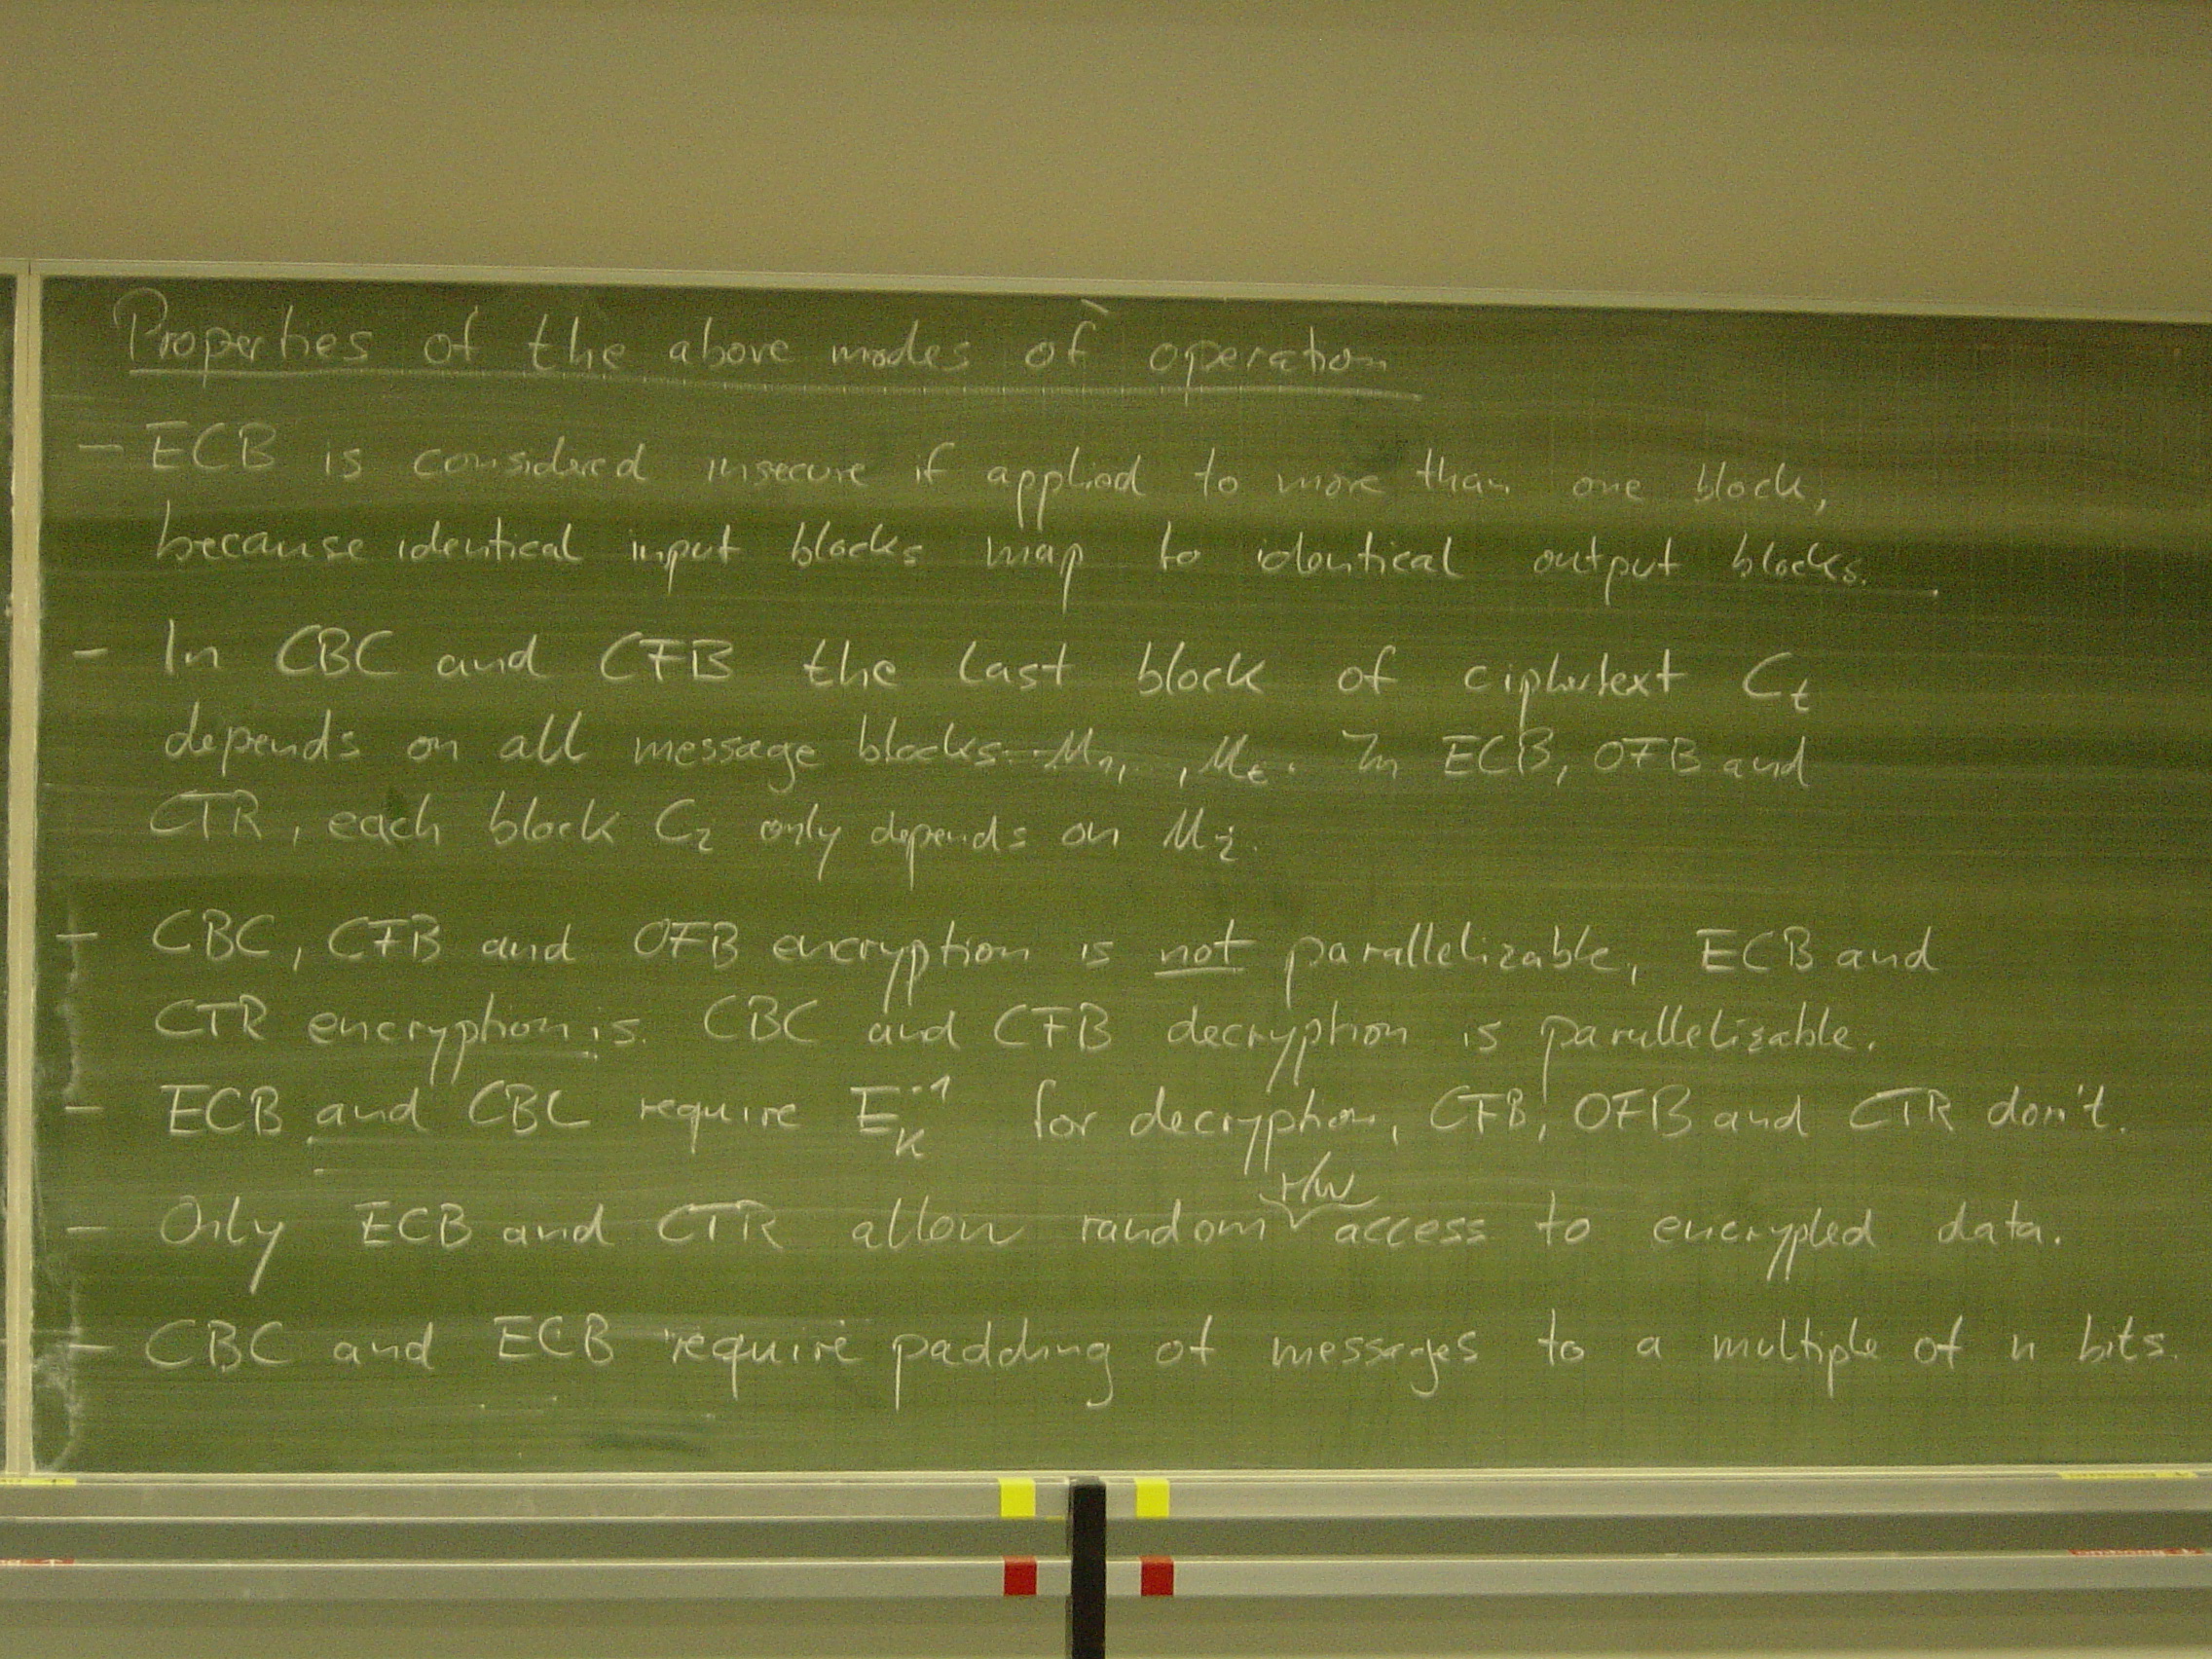 Properties of the above modes of operation
- ECB is considered insecure if applied to more than one block,
because identical input blocks map to identical output blocks.
- In CBC and CFB the last block of ciphertext C_t
depends on all message blocks M_1, , M_t. In ECB, OFB and
CTR, each block C_i only depends on M_i.
- CBC, CFB and OFB encryption is not parallelizable, ECB and
CTR encryption is. CBC and CFB decryption is parallelizable.
- ECB and CBC require E_K^-1 for decryption, CFB, OFB and CTR don't.
r/w
- Only ECB and CTR allow random access to encrypted data.
- CBC and ECB require padding of messages to a multiple of n bits.